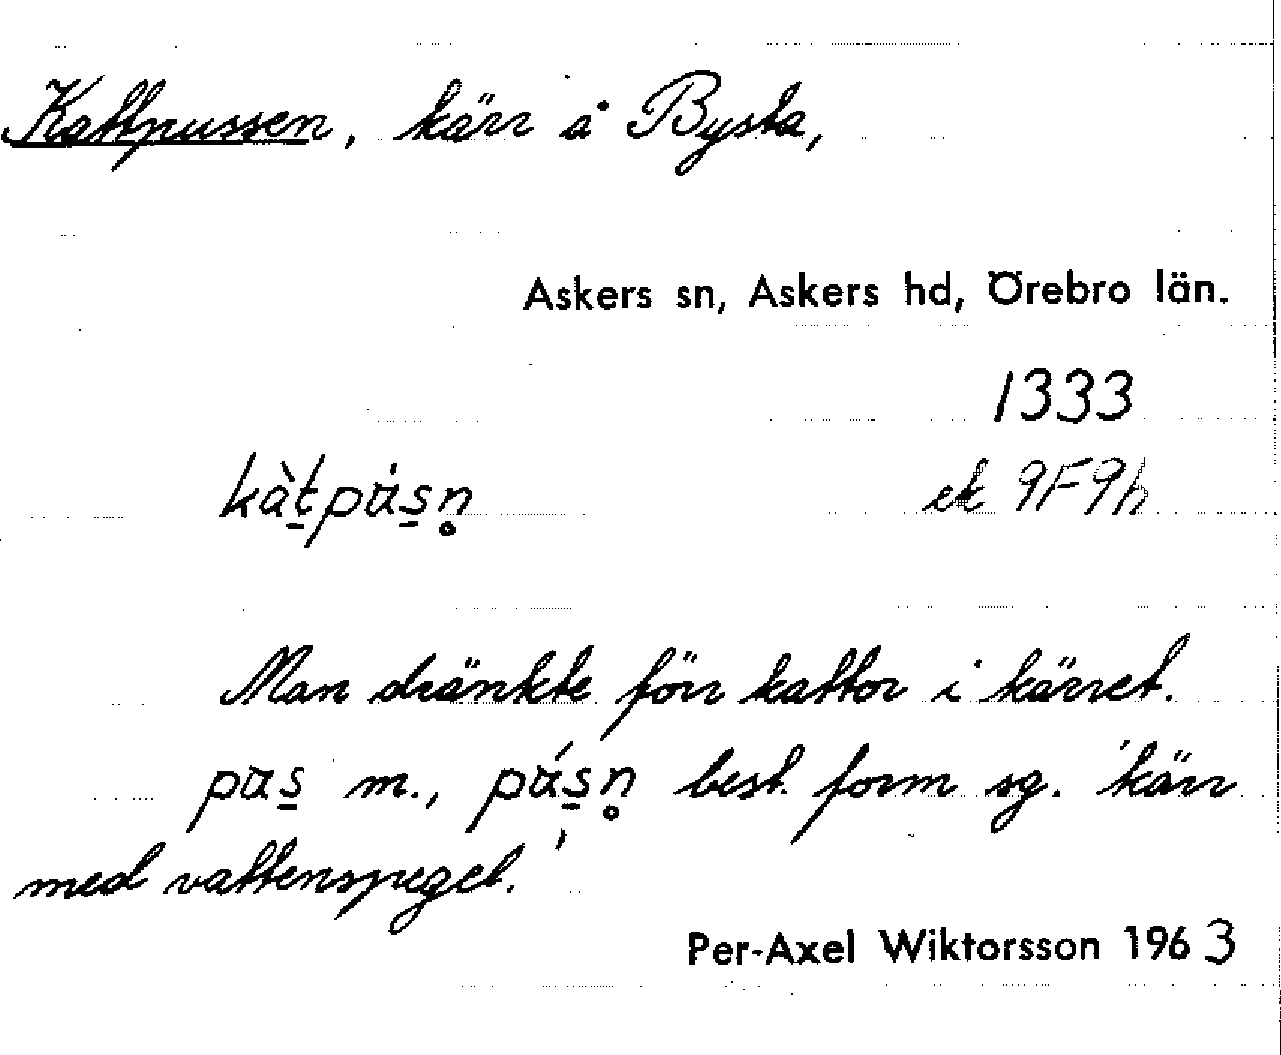 Kattpussen, kärr å Bysta,
Askers sn, Askers hd, Örebro län.
1333
ek 9F9h
Man dränkte förr kattor i kärret.
m., best. form sg. 'kärr
med vattenspegel.'
Per-Axel Wiktorsson 1963